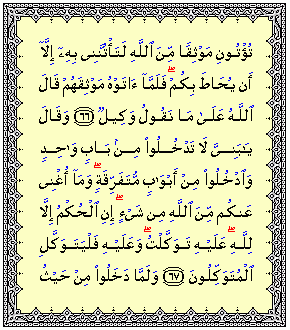 تُؤْتُونِ مَوْثِقًا مِّنَ ٱللَّهِ لَتَأْتُنَّنِى بِهِۦٓ إِلَّآ
أَن يُحَاطَ بِكُمْ ۖ فَلَمَّآ ءَاتَوْهُ مَوْثِقَهُمْ قَالَ
ٱللَّهُ عَلَىٰ مَا نَقُولُ وَكِيلٌ ﴿٦٦﴾ وَقَالَ
يَـٰبَنِىَّ لَا تَدْخُلُوا۟ مِنۢ بَابٍ وَٰحِدٍ
وَٱدْخُلُوا۟ مِنْ أَبْوَٰبٍ مُّتَفَرِّقَةٍ ۖ وَمَآ أُغْنِى
عَنكُم مِّنَ ٱللَّهِ مِن شَىْءٍ ۖ إِنِ ٱلْحُكْمُ إِلَّا
لِلَّهِ ۖ عَلَيْهِ تَوَكَّلْتُ ۖ وَعَلَيْهِ فَلْيَتَوَكَّلِ
ٱلْمُتَوَكِّلُونَ ﴿٦٧﴾ وَلَمَّا دَخَلُوا۟ مِنْ حَيْثُ